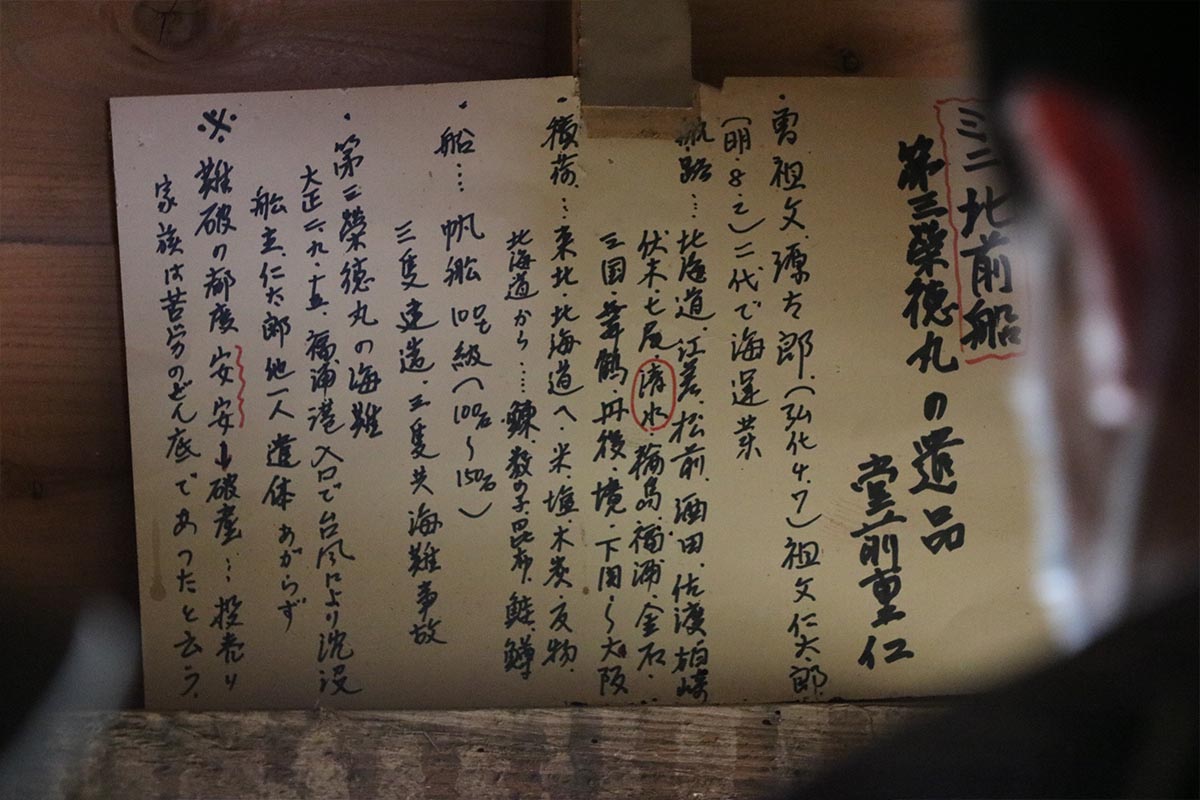 ミニ北前船
第三榮徳丸の遺品
堂前重仁
曽祖父.源太郎.(弘化4.7)祖父仁太郎.
(明.8.2)二代で海運業
・航路…北海道.江差.松前.酒田.佐渡.柏崎
伏木七尾.清水.輪島.福浦.金石.
三国舞鶴丹後.境.下関〜大阪
・積荷…東北.北海道へ.米.塩.木炭.反物.
北海道から……鰊.数の子.昆布.鮭.鱒
・船…帆船100石級(100石〜150石)
三隻建造.三隻共海難事故
・第三榮徳丸の海難
大正二.九.十五.福浦港入口で台風により沈没
船主.仁太郎他一人遺体あがらず
※難破の都度 破産…投売り
家族は苦労のどん底であったと云う.